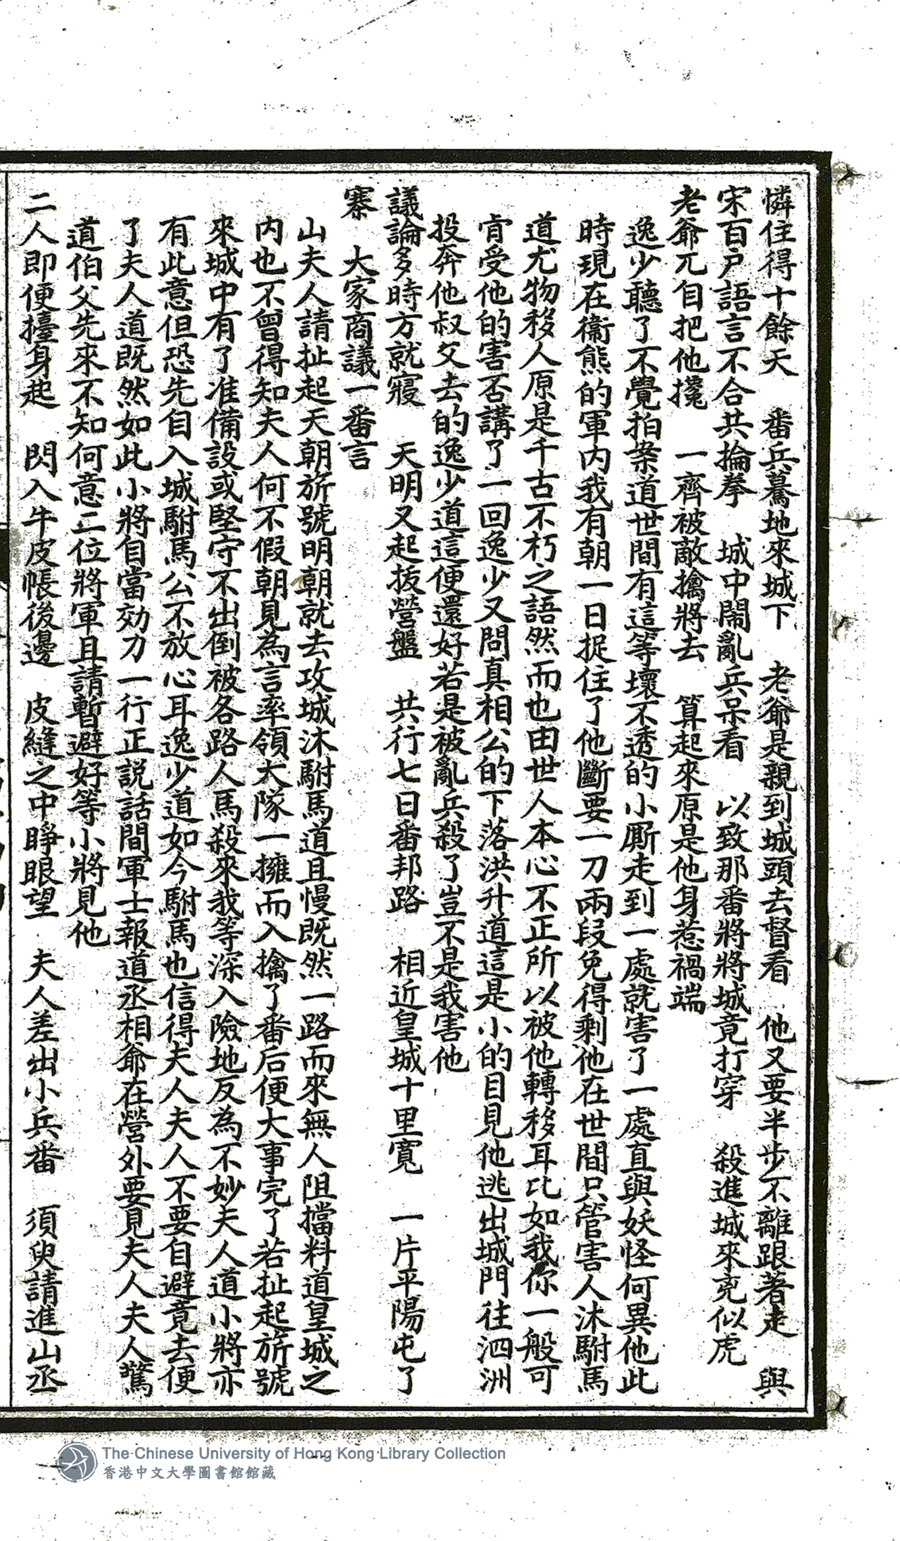 憐住得十餘天　番兵驀地來城下　老爺是親到城頭去督看　他又要半步不離跟著走　與
宋百戶語言不合共掄拳　城中鬧亂兵呆看　以致那番將將城竟打穿　殺進城來兇似虎
老爺兀自把他攙　一齊被敵擒將去　算起來原是他身惹禍端
逸少聽了不覺拍案道世間有這等壞不透的小廝走到一處就害了一處直與妖怪何異他此
時現在衞熊的軍內我有朝一日捉住了他斷要一刀兩段免得剩他在世間只管害人沐駙馬
道尤物移人原是千古不朽之語然而也由世人本心不正所以被他轉移耳比如我你一般可
肯受他的害否講了一回逸少又問真相公的下落洪升道這是小的目見他逃出城門往泗洲
投奔他叔父去的逸少道這便還好若是被亂兵殺了豈不是我害他
議論多時方就寢　天明又起拔營盤　共行七日番邦路　相近皇城十里寬　一片平陽屯了
寨　大家商議一番言
山夫人請扯起天朝旂號明朝就去攻城沐駙馬道且慢既然一路而來無人阻擋料道皇城之
內也不曾得知夫人何不假朝見為言率領大隊一擁而入擒了番后便大事完了若扯起旂號
來城中有了准備設或堅守不出倒被各路人馬殺來我等深入險地反為不妙夫人道小將亦
有此意但恐先自入城駙馬公不放心耳逸少道如今駙馬也信得夫人夫人不要自避竟去便
了夫人道既然如此小將自當効力一行正説話間軍士報道丞相爺在營外要見夫人夫人驚
道伯父先來不知何意二位將軍且請暫避好等小將見他
二人即便擡身起　閃入牛皮帳後邊　皮縫之中睜眼望　夫人差出小兵番　須臾請進山丞
The Chinese University of Hong Kong Library Collection
香港中文大學圖書館館藏